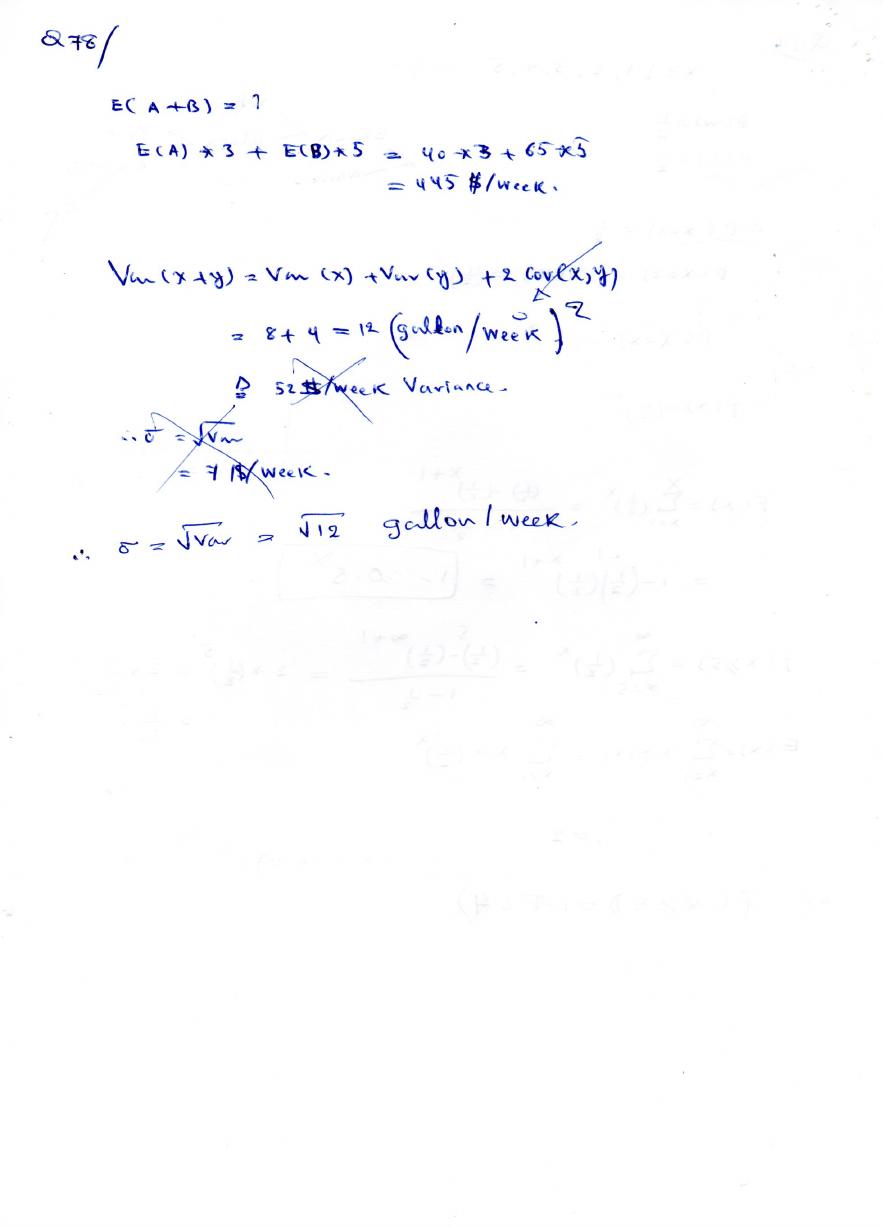 Q78/
E( A +B) = ?
E(A) * 3 + E(B)*5 = 40 * 3 + 65 * 5
= 445 $/week.
Var (x+y) = Var (x) + Var (y) + 2 Cov(x,y)
= 8+ 4 = 12 (gallon/week)²
52 $/week Variance.
∴ σ = √Var
= 7 $/week.
∴ σ = √Var = √12 gallon/week.